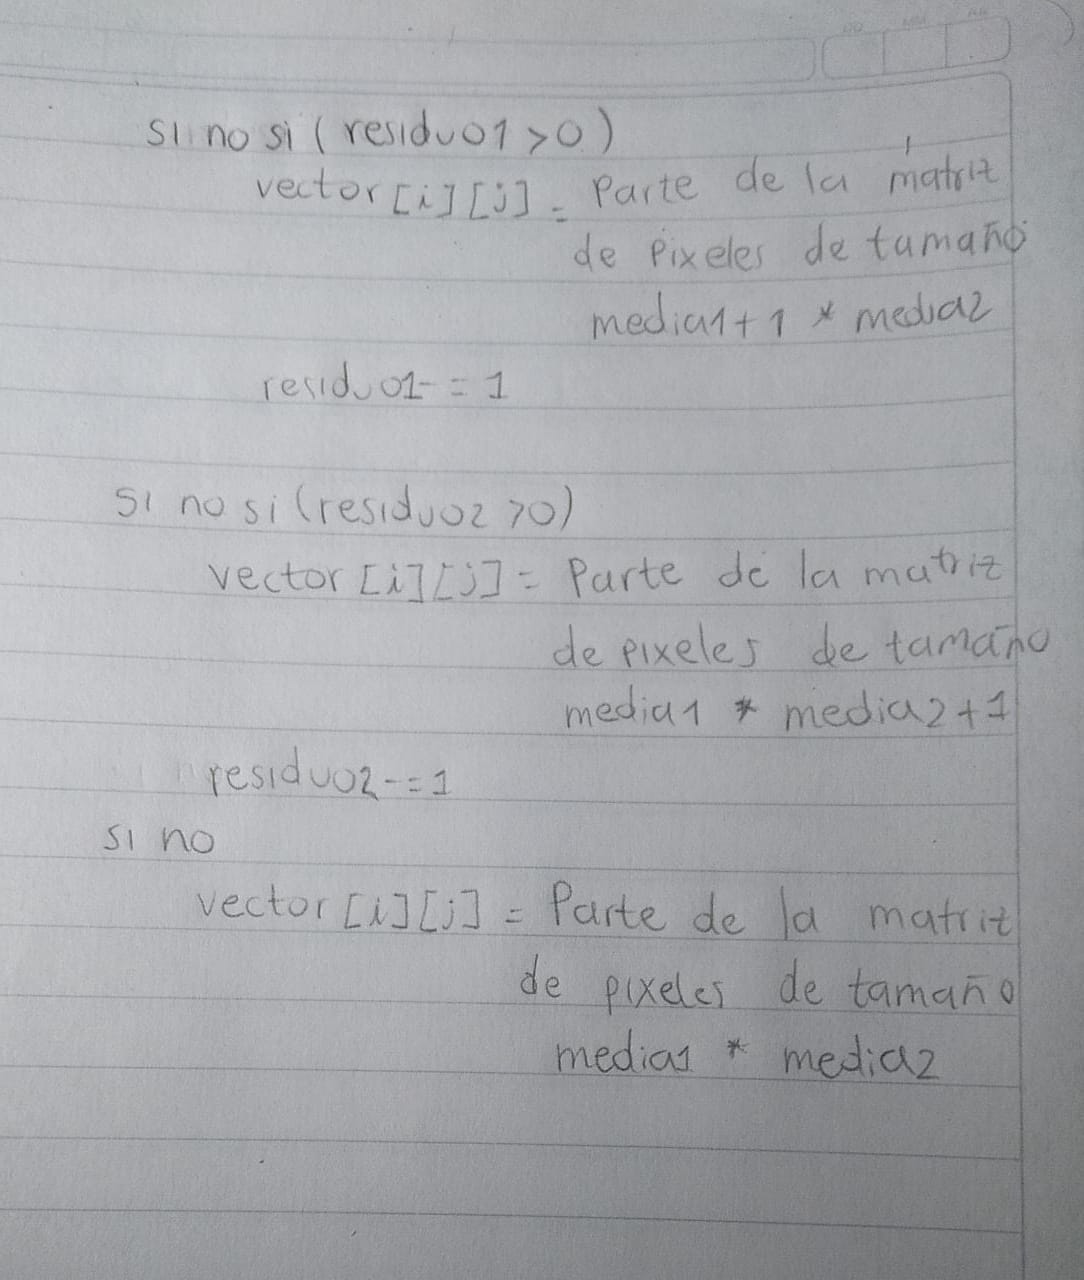 si no si (residuo1 > 0)
vector [i] [j] = Parte de la matriz
de Pixeles de tamaño
media1 + 1 * media2
residuo1 - = 1
si no si (residuo2 > 0)
vector [i] [j] = Parte de la matriz
de pixeles de tamaño
media1 * media2 + 1
residuo2 - = 1
si no
vector [i] [j] = Parte de la matriz
de pixeles de tamaño
media1 * media2